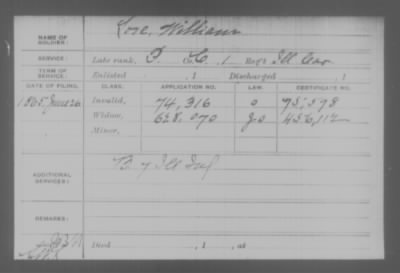 NAME OF SOLDIER: William
SERVICE: Late rank, P. Co. C, 1 Reg't Ill Cav.
TERM OF SERVICE: Enlisted , 1 Discharged , 1
DATE OF FILING. CLASS. APPLICATION NO. LAW. CERTIFICATE NO.
1865 June 26 Invalid, 74,316 o 75,578
Widow, 628,070 456,112
Minor,
ADDITIONAL SERVICES: B 7 Ill Inf
REMARKS:
Died , 1 , at